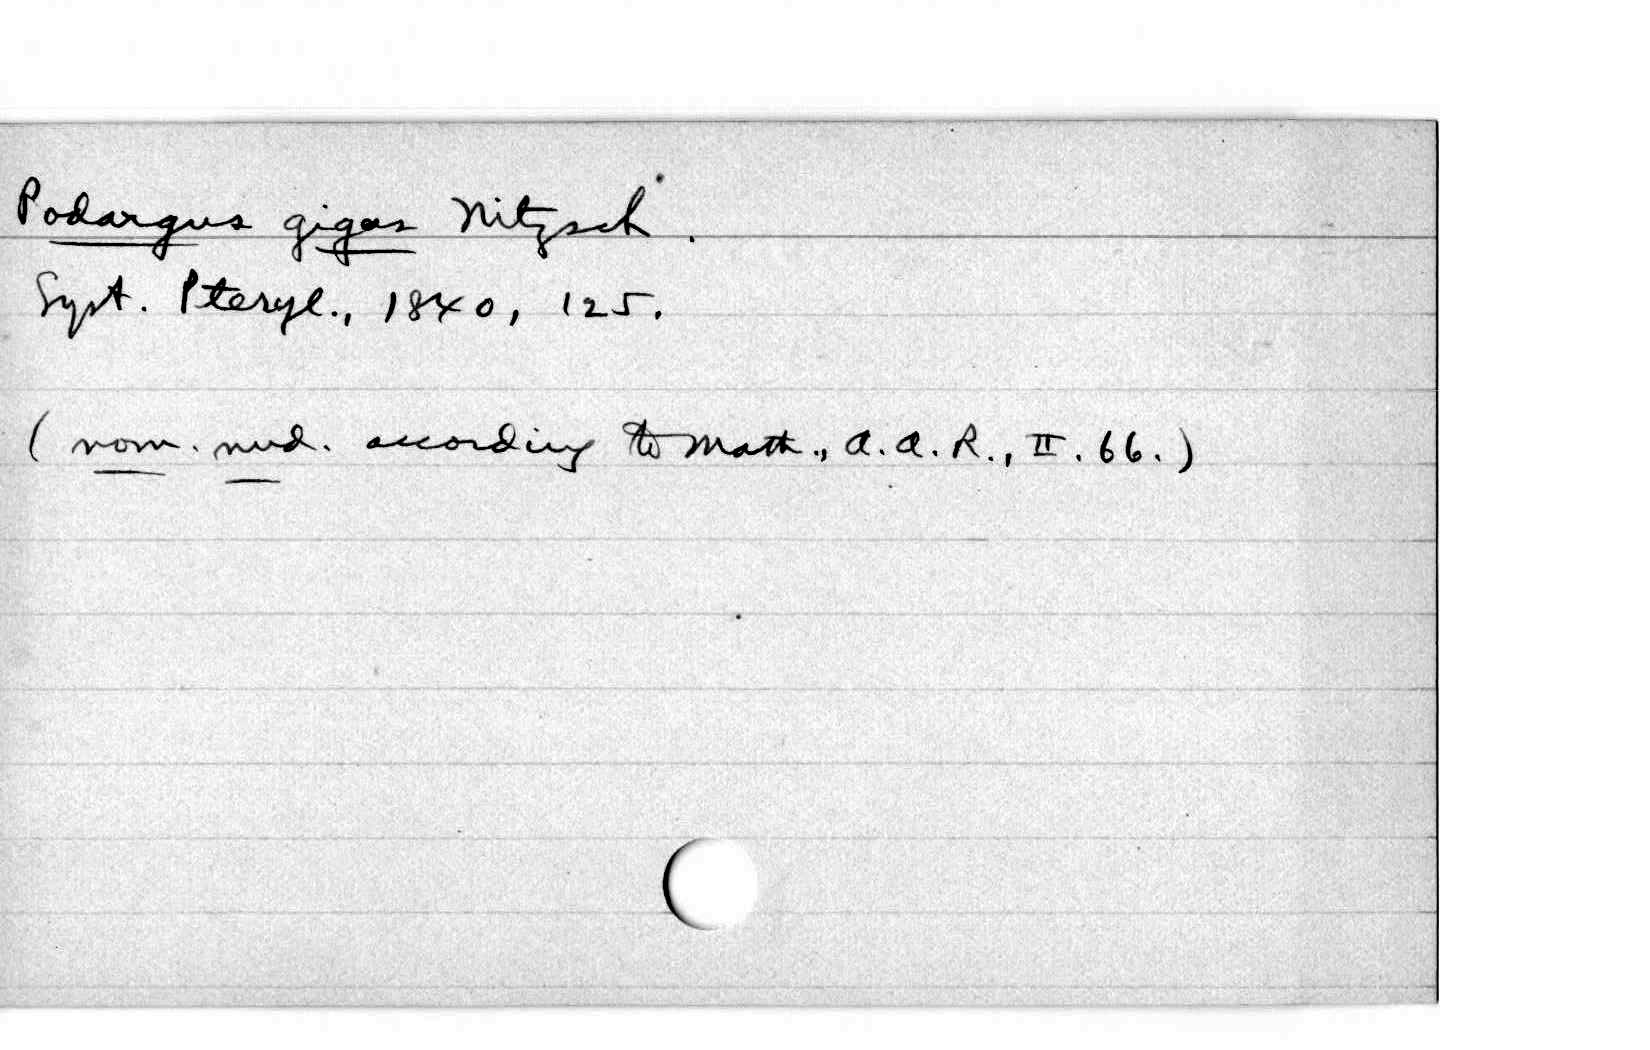 Podargus gigas Nitzsch.
Syst. Pteryl., 1840, 125.
(nom. nud. according to Math., A.A.R., II. 66.)